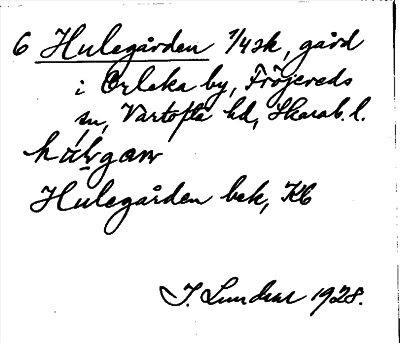 6 Hulegården 1/4 sk, gård
i Orleka by, Fröjereds
sn, Vartofta hd, Skarab. l.
Hulegården bek, Kb
J. Lundar 1928.